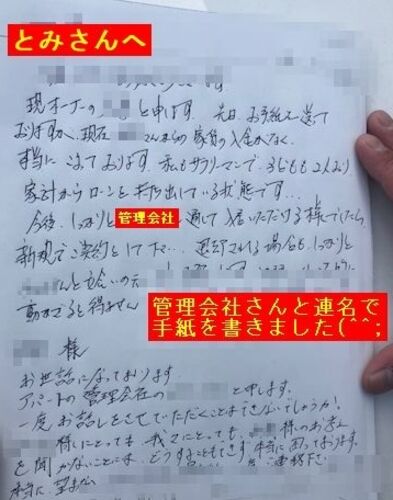 とみさんへ
現オーナーの と申します 先日 お手紙を送って
おりますが、現在 さんからの家賃の入金がなく、
本当に こまっております 私もサラリーマンで、子ども 2人おり
家計からローンを 出している状態です…
今後、しっかりと 管理会社 通して 入居いただける様でしたら、
新規でご契約として 退去される場合も、しっかりと
管理会社さんと連名で
手紙を書きました(^^;
動かざる得ません
様
お世話になっております
アパートの管理会社の と申します。
一度 お話しをさせていただくことはできないでしょうか?
様にとっても、我々にとっても、 様のお考え
を聞かないことには、どうすることもできず、本当に困っております。